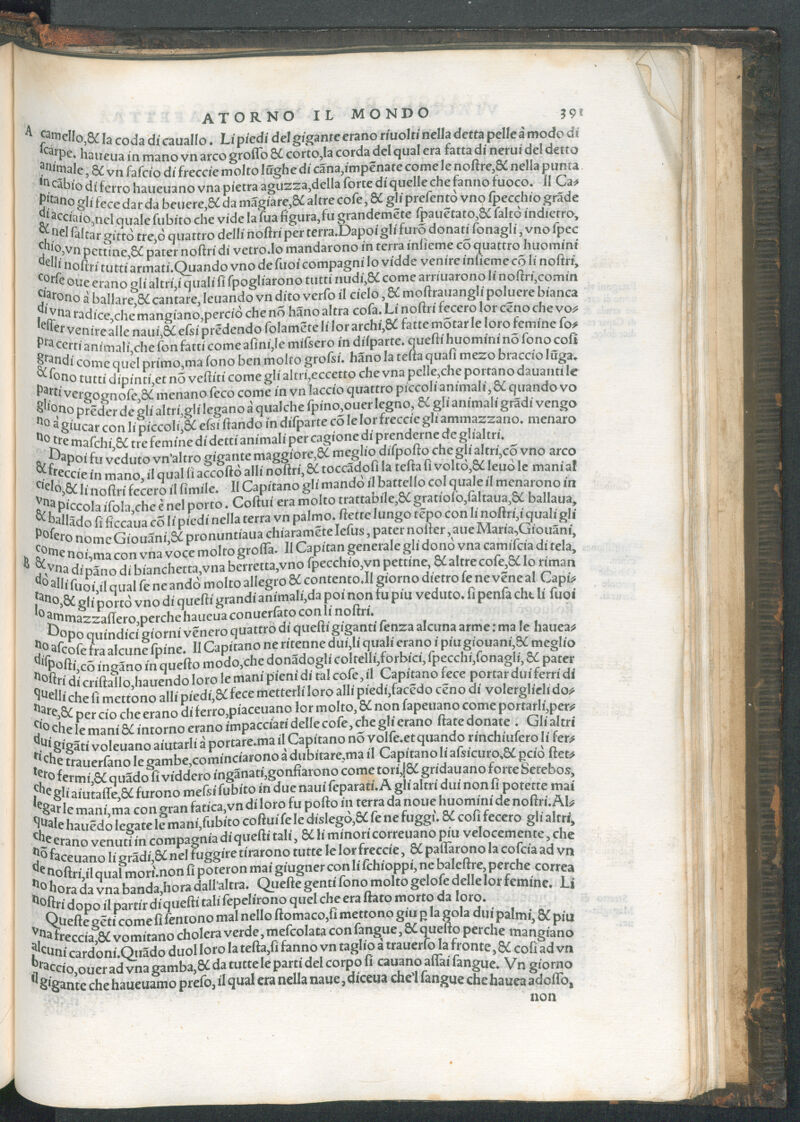 ATORNO IL MONDO 391
A camello,& la coda di cauallo. Li piedi del gigante erano riuolti nella detta pelle à modo di
ſcarpe. haueua in mano vn arco groſſo & corto,la corda del qual era fatta di nerui del detto
animale, & vn faſcio di freccie molto lũghe di cãna,impẽnate come le noſtre,& nella punta
in cãbio di ferro haueuano vna pietra aguzza,della ſorte di quelle che fanno fuoco. Il Ca⸗
pitano gli fece dar da beuere,& da mãgiare,& altre coſe, & gli preſentò vno ſpecchio grãde
di acciaio,nel quale ſubito che vide la ſua figura,fu grandemẽte ſpauẽtato,& ſaltò indietro,
& nel ſaltar gittò tre,ò quattro delli noſtri per terra.Dapoi gli furõ donati ſonagli, vno ſpec
chio,vn pettine,& pater noſtri di vetro.lo mandarono in terra inſieme cõ quattro huomini
delli noſtri tutti armati.Quando vno de ſuoi compagni lo vidde venire inſieme cõ li noſtri,
corſe oue erano gli altri,i quali ſi ſpogliarono tutti nudi,& come arriuarono li noſtri,comin
ciarono à ballare,& cantare, leuando vn dito verſo il cielo, & moſtrauangli poluere bianca
di vna radice,che mangiano,perciò che nõ hãno altra coſa. Li noſtri fecero lor cẽno che vo⸗
leſſer venire alle naui,& eſsi prẽdendo ſolamẽte li lor archi,& fatte mõtar le loro femine ſo⸗
pra certi animali,che ſon fatti come aſini,le miſsero in diſparte. queſti huomini nõ ſono coſi
grandi come quel primo,ma ſono ben molto groſsi. hãno la teſta quaſi mezo braccio lũga.
& ſono tutti dipinti,et nõ veſtiti come gli altri,eccetto che vna pelle,che portano dauanti le
parti vergognoſe,& menano ſeco come in vn laccio quattro piccoli animali, & quando vo
gliono prẽder de gli altri,gli legano à qualche ſpino,ouer legno, & gli animali grãdi vengo
no à giucar con li piccoli,& eſsi ſtando in diſparte cõ le lor freccie gli ammazzano. menaro
no tre maſchi,& tre femine di detti animali per cagione di prenderne de gli altri.
Dapoi fu veduto vn'altro gigante maggiore,& meglio diſpoſto che gli altri,cõ vno arco
& freccie in mano, il qual ſi accoſtò alli noſtri, & toccãdoſi la teſta ſi voltò,& leuò le mani al
cielo,& li noſtri fecero il ſimile. Il Capitano gli mandò il battello col quale il menarono in
vna piccola iſola,che è nel porto. Coſtui era molto trattabile,& gratioſo,ſaltaua,& ballaua,
& ballãdo ſi ficcaua cõ li piedi nella terra vn palmo. ſtette lungo tẽpo con li noſtri,i quali gli
poſero nome Giouãni,& pronuntiaua chiaramẽte Ieſus, pater noſter, aue Maria,Giouãni,
come noi,ma con vna voce molto groſſa. Il Capitan generale gli donò vna camiſcia di tela,
B & vna di pãno di bianchetta,vna berretta,vno ſpecchio,vn pettine, & altre coſe,& lo riman
dò alli ſuoi,il qual ſe ne andò molto allegro & contento.Il giorno dietro ſe ne vẽne al Capi⸗
tano,& gli portò vno di queſti grandi animali,da poi non fu piu veduto. ſi penſa che li ſuoi
lo ammazzaſſero,perche haueua conuerſato con li noſtri.
Dopo quindici giorni vẽnero quattro di queſti giganti ſenza alcuna arme: ma le hauea⸗
no aſcoſe fra alcune ſpine. Il Capitano ne ritenne dui,li quali erano i piu giouani,& meglio
diſpoſti,cõ ingãno in queſto modo,che donãdogli coltelli,forbici, ſpecchi,ſonagli, & pater
noſtri di criſtallo,hauendo loro le mani pieni di tal coſe, il Capitano fece portar dui ferri di
quelli che ſi mettono alli piedi,& fece metterli loro alli piedi,facẽdo cẽno di volerglieli do⸗
nare,& per cio che erano di ferro,piaceuano lor molto, & non ſapeuano come portarli,per⸗
cio che le mani & intorno erano impacciati delle coſe, che gli erano ſtate donate. Gli altri
dui gigãti voleuano aiutarli à portare.ma il Capitano nõ volſe.et quando rinchiuſero li fer⸗
ri che trauerſano le gambe,cominciarono à dubitare,ma il Capitano li aſsicurò,& p̱ciò ſtet⸗
tero fermi,& quãdo ſi viddero ingãnati,gonfiarono come tori,& gridauano forte Setebos,
che gli aiutaſſe,& furono meſsi ſubito in due naui ſeparati. A gli altri dui non ſi potette mai
legar le mani,ma con gran fatica,vn di loro fu poſto in terra da noue huomini de noſtri.Al⸗
quale hauẽdo legate le mani,ſubito coſtui ſe le diſlegò,& ſe ne fuggì. & coſi fecero gli altri,
che erano venuti in compagnia di queſti tali, & li minori correuano piu velocemente, che
nõ faceuano li grãdi,& nel fuggire tirarono tutte le lor freccie, & paſſarono la coſcia ad vn
de noſtri,il qual morì.non ſi poteron mai giugner con li ſchioppi, ne baleſtre, perche correa
no hora da vna banda,hora dall'altra. Queſte genti ſono molto geloſe delle lor femine. Li
noſtri dopo il partir di queſti tali ſepelirono quel che era ſtato morto da loro.
Queſte gẽti come ſi ſentono mal nello ſtomaco,ſi mettono giu p̱ la gola dui palmi, & piu
vna freccia,& vomitano cholera verde, meſcolata con ſangue, & queſto perche mangiano
alcuni cardoni.Quãdo duol loro la teſta,ſi fanno vn taglio à trauerſo la fronte, & coſi ad vn
braccio,ouer ad vna gamba,& da tutte le parti del corpo ſi cauano aſſai ſangue. Vn giorno
il gigante che haueuamo preſo, il qual era nella naue, diceua che'l ſangue che hauea adoſſo,
non